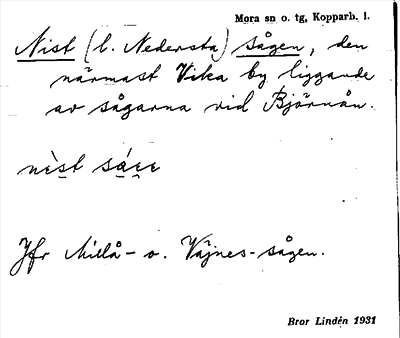 Mora sn o. tg, Kopparb. l.
Nist (l. Nedersta) sågen, den
närmast Vika by liggande
av sågarna vid Björnån.
nèst
Jfr Millå- o. Väjnes-sågen.
Bror Lindén 1931